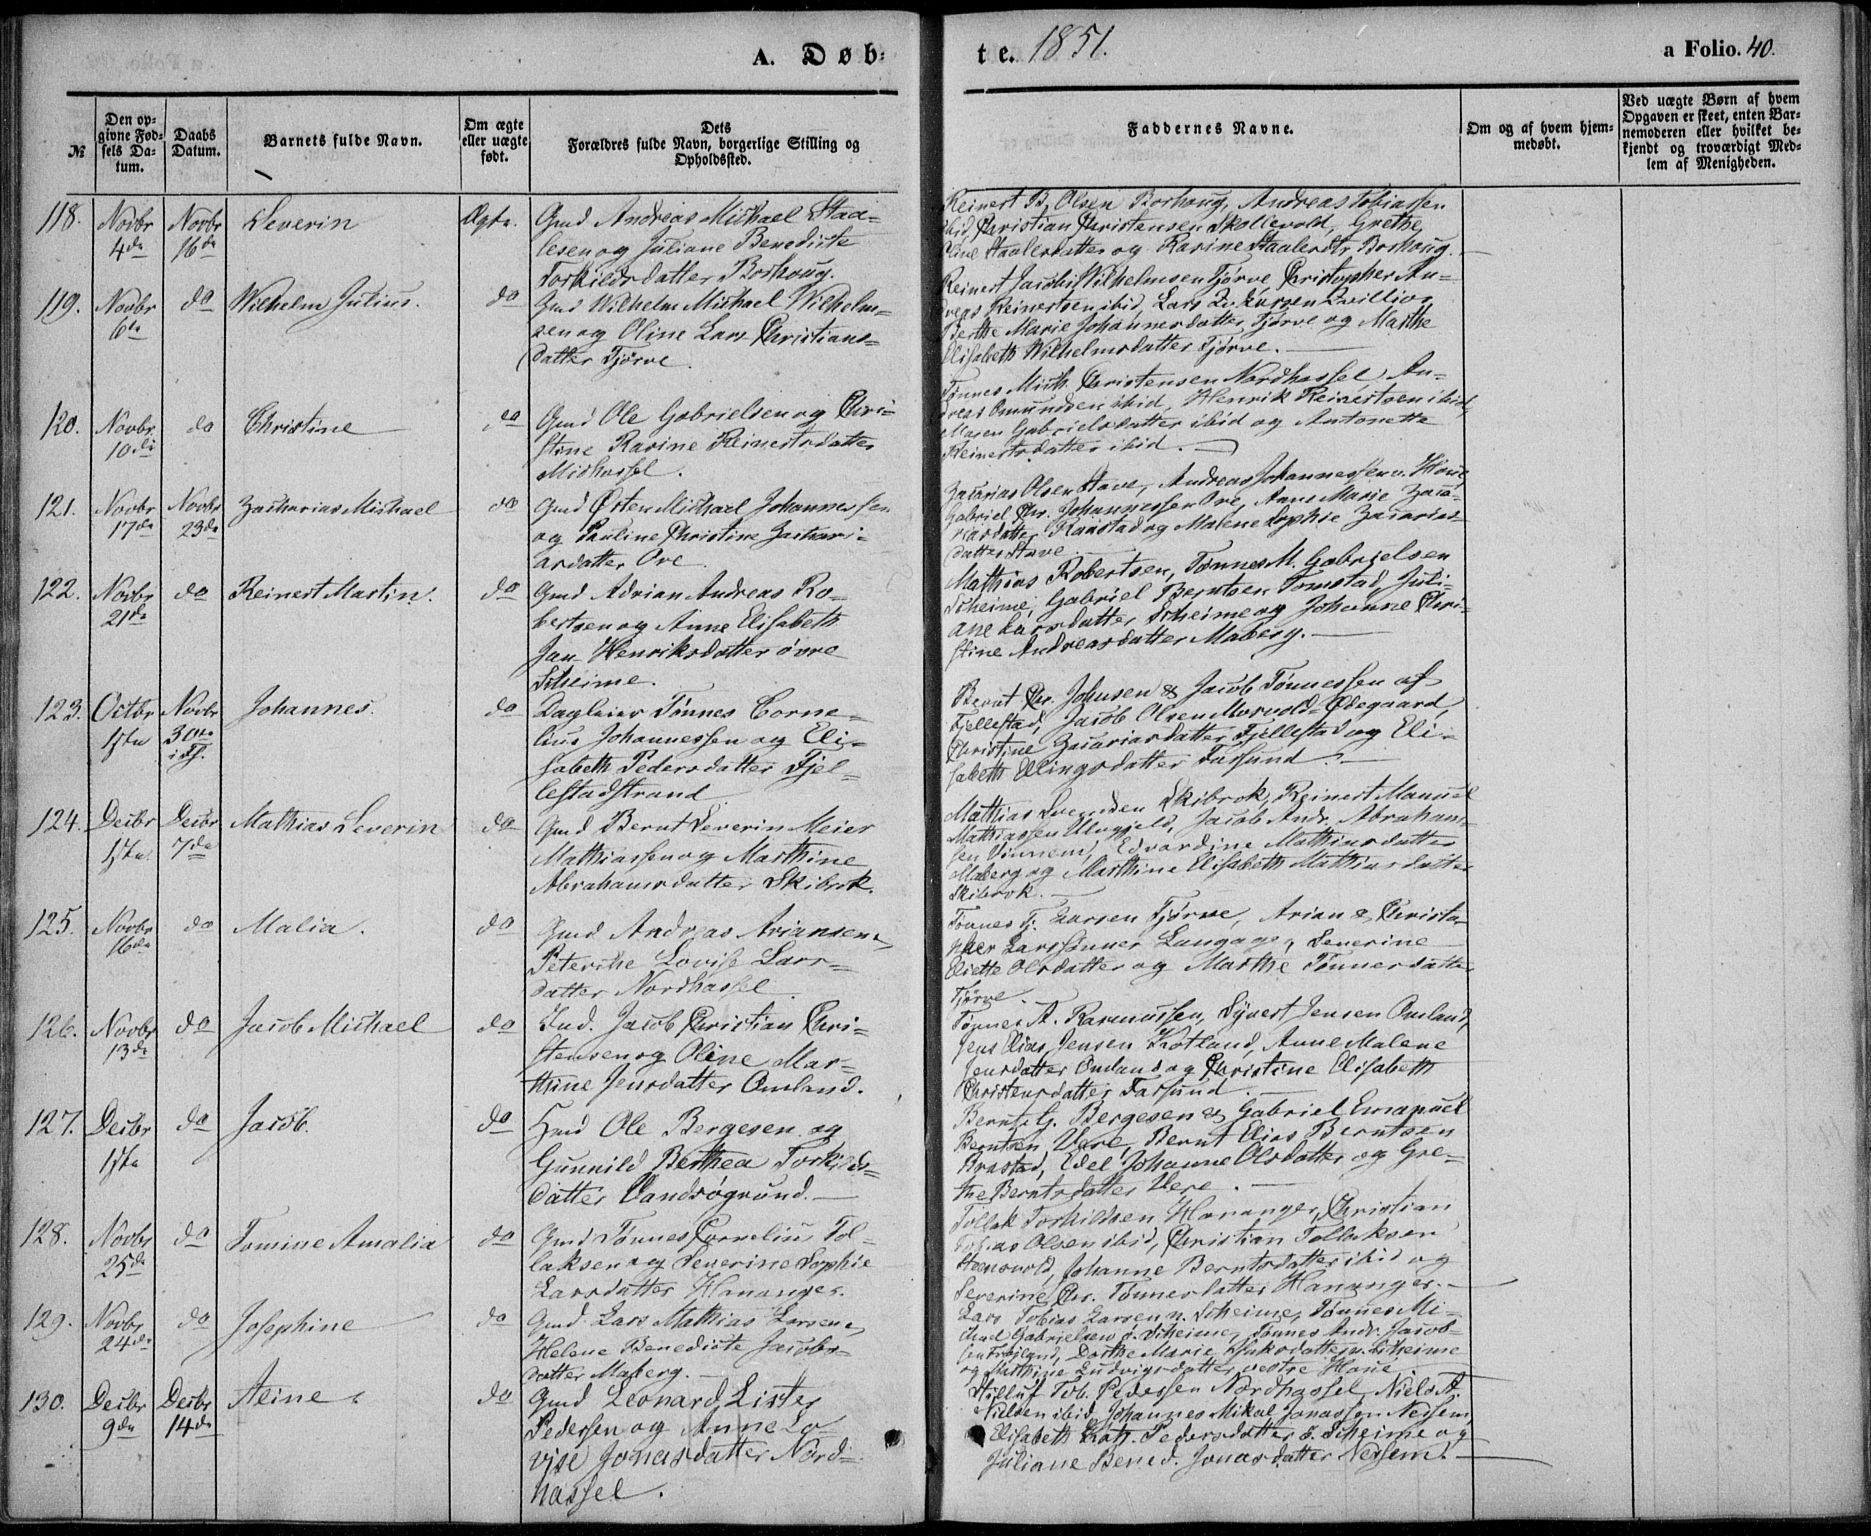 A. Døb-
te. 1851.
a Folio. 40.
№
Den op-
givne Fød-
sels Da-
tum.
Daabs
Datum.
Barnets fulde Navn.
Om ægte
eller uægte
født.
Dets
Forældres fulde Navn, borgerlige Stilling og
Opholdssted.
Faddernes Navne.
Om og af hvem hjem-
medøbt.
Ved uægte Børn af hvem
Opgaven er skeet, enten Bar-
nemoderen eller hvilket be-
kjendt og troværdigt Med-
lem af Menigheden.
118.
Novbr
4de
Novbr
16de
Severin
Ægte.
Gmd Andreas Michael Staa-
lesen og Juliane Benedicte
Torkildsdatter Borhoug.
Reinert B. Olsen Borhoug, Andreas Tobiassen
ibid Christian Christensen Skollevold, Grethe
Staalesdatter og Karine Staalesdtr Borhoug.
119.
Novbr
6te
do
Wilhelm Julius.
do
Gmd Wilhelm Michael Wilhelm-
sen og Oline Lars Christians-
datter Tjørve.
Reinert Jacob Wilhelmsen Tjørve, Christopher An-
dreas Reinertsen ibid, Lars Larsen
Berthe Marie Johannesdatter Tjørve og Marthe
Elisabeth Wilhelmsdatter Tjørve.
120.
Novbr
10de
do
Christine
do
Gmd Ole Gabrielsen og Chri-
stine Karine Reinertsdatter
Midhassel.
Tønnes Mich. Christensen Nordhassel, An-
dreas Omundsen ibid, Henrik Reinertsen ibid,
Maren Gabrielsdatter ibid og Antonette
Reinertsdatter ibid.
121.
Novbr
17de
Novbr
23de
Zacharias Michael
do
Gmd Østen Michael Johannessen
og Pauline Christine Zachari-
asdatter Ore.
Zacarias Olsen Stave, Andreas Johannessen v. Haue,
Gabriel Chr. Johannessen Ore, Anne Marie Zaca-
riasdatter og Malene Sophie Zacarias-
datter Stave
122.
Novbr
21de
do
Reinert Martin.
do
Gmd Adrian Andreas Ro-
bertsen og Anne Elisabeth
Jan Henriksdatter øvre
Scheime.
Mathias Robertsen, Tønnes M. Gabrielsen
Scheime, Gabriel Berntsen Tomstad, Juli-
ane Larsdatter Scheime og Johanne Chri-
stine Andreasdatter Maberg.
123.
Octbr
1ste
Novbr
30te
i Fs.
Johannes.
do
Dagleier Tønnes Corne-
lius Johannessen og Eli-
sabeth Pedersdatter Fjel-
lestadstrand
Bernt Chr. Johnsen & Jacob Tønnessen af
Fjellestad, Jacob Olsen Morvold Ødegaard,
Christine Zacariasdatter Fjellestad og Eli-
sabeth Ellingsdatter Farsund.
124.
Decbr
1ste
Decbr
7de
Mathias Severin
do
Gmd Bernt Severin Meier
Mathiassen og Marthine
Abrahamsdatter Skibrok.
Mathias Svendsen Skibrok, Reinert Manuel
Mathiassen Ulvgjeld, Jacob Andr. Abraham-
sen Vinnem, Edvardine Mathiasdatter
Maberg og Marthine Elisabeth Mathiasdatter
Skibrok.
125.
Novbr
16de
do
Malia.
do
Gmd Andreas Ariansen &
Peterike Lovise Lars-
datter Nordhassel
Tønnes Tj. Larsen Tjørve, Arian & Christo-
pher Larssønner Langage, Severine
Eliette Olsdatter og Marthe Tønnesdatter
Tjørve.
126.
Novbr
13de
do
Jacob Michael
do
Ind. Jacob Christian Chri-
stensen og Oline Mar-
thine Jensdatter Omland.
Tønnes A. Rasmussen, Syvert Jensen Omland,
Jens Elias Jensen Kotland, Anne Malene
Jensdatter Omland og Christine Elisabeth
Christensdatter Farsund.
127.
Decbr
1ste
do
Jacob.
do
Hmd Ole Bergesen og
Gunnild Berthea Torkilds-
datter Vandsøgrund.
Bernt G. Bergesen & Gabriel Emanuel
Berntsen Vere, Bernt Elias Berntsen
Brastad, Edel Johanne Olsdatter og Gre-
the Berntsdatter Vere.
128.
Novbr
25de
do
Tomine Amalia
do
Gmd Tønnes Cornelius Tol-
laksen og Severine Sophie
Larsdatter Hananger.
Tollak Torkildsen Hananger, Christian
Tobias Olsen ibid, Christian Tollaksen
Steensvold, Johanne Berntsdatter ibid og
Severine Chr. Tønnesdatter Hananger.
129.
Novbr
24de
do
Josephine
do
Gmd Lars Mathias Larsen &
Helene Benedicte Jacobs-
datter Maberg.
Lars Tobias Larsen n. Scheime, Tønnes Mi-
chael Gabrielsen ø. Scheime, Tønnes Andr. Jacob-
sen Frøiland, Dorthe Marie datter n. Scheime
og Mathine Ludvigsdatter vestre Haue.
130.
Decbr
9de
Decbr
14de
Aline.
do
Gmd Leonard Lister
Pedersen og Anne Lo-
vise Jonasdatter Nord-
hassel.
Tob. Pedersen Nordhassel, Niels A.
Nielsen ibid, Johannes Mikal Jonassen Nessem,
Elisabeth Kath. Pedersdatter ø. Scheime og
Juliane Bened. Jonasdatter Nessem.